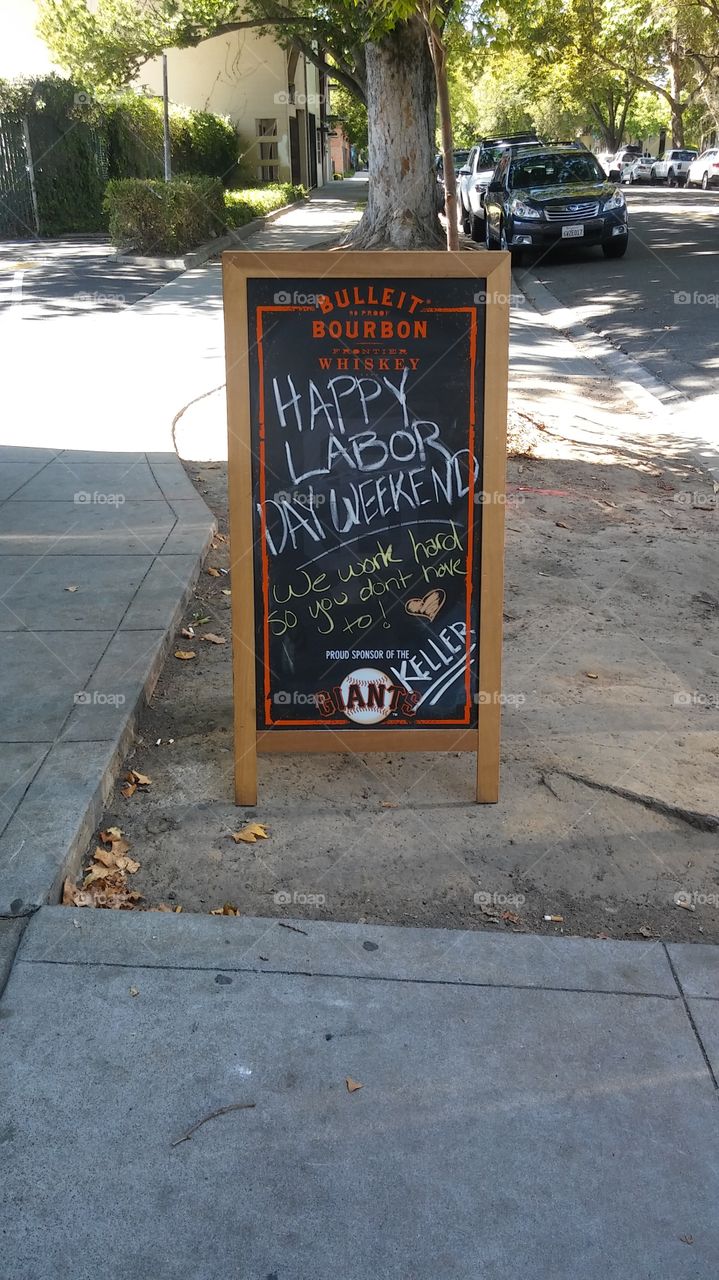 BULLEIT
90 PROOF
BOURBON
FRONTIER
WHISKEY
HAPPY
LABOR
DAY WEEKEND
We work hard
so you dont have
to!
KELLER
PROUD SPONSOR OF THE
GIANTS
foap